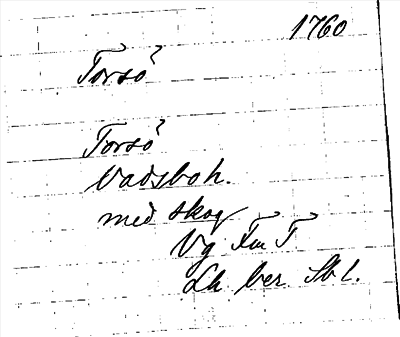 1760
Torsö
Torsö
Vadsboh.
med skog
Vg Fm T
Lh ber. Sb l.